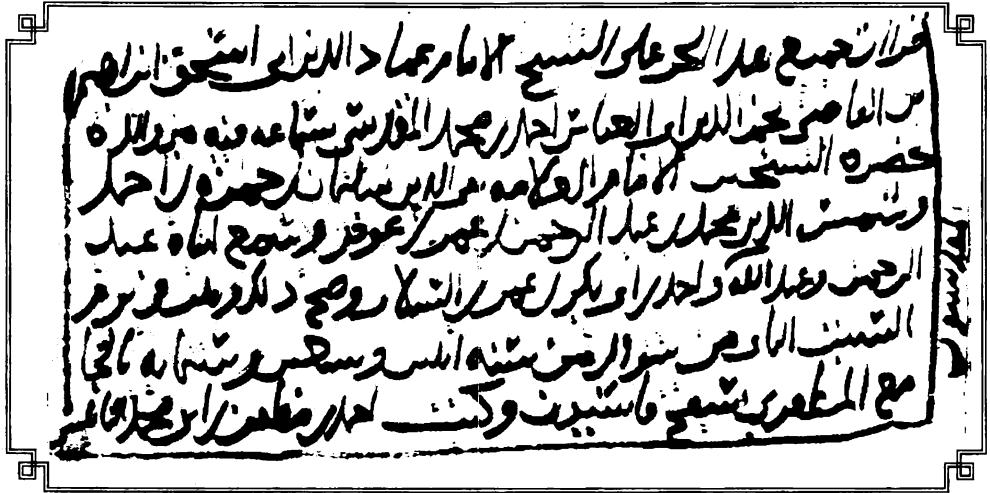 قرات جميع هذا الجزء على الشيخ الامام عماد الدين ابى اسحق ابراهيم
بن القاضى نجم الدين ابى العباس احمد بن محمد المقدسى بسماعه فيه من والده
حضره الشيخين الامام العلامه تقى الدين سليمان بن حمزه بن احمد
وشمس الدين محمد بن عبد الرحمن بن عمر بن عوض وسمع ابناه عبد
الرحمن وعبد الله واحمد بن ابى بكر بن عمر بن السلار وصح ذلك وثبت فى يوم
السبت من شوال من سنه وسبعمايه بالجا
مع المظفرى بسفح قاسيون وكتب احمد بن مظفر بن ابى محمد